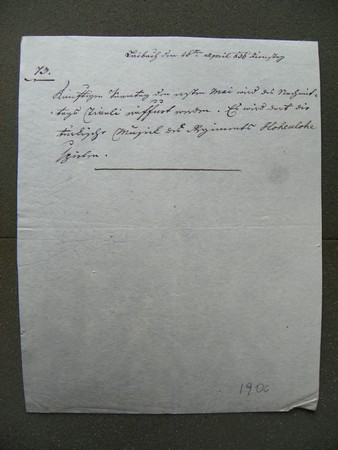 Laibach den 26ten April 836 Dienstag
73.
Künftigen Sonntag den ersten Mai wird des Nachmit-
tags Tivoli eröffnet werden. Es wird dort die
türkische Musick des Regiments Hohenlohe
spielen.
1900